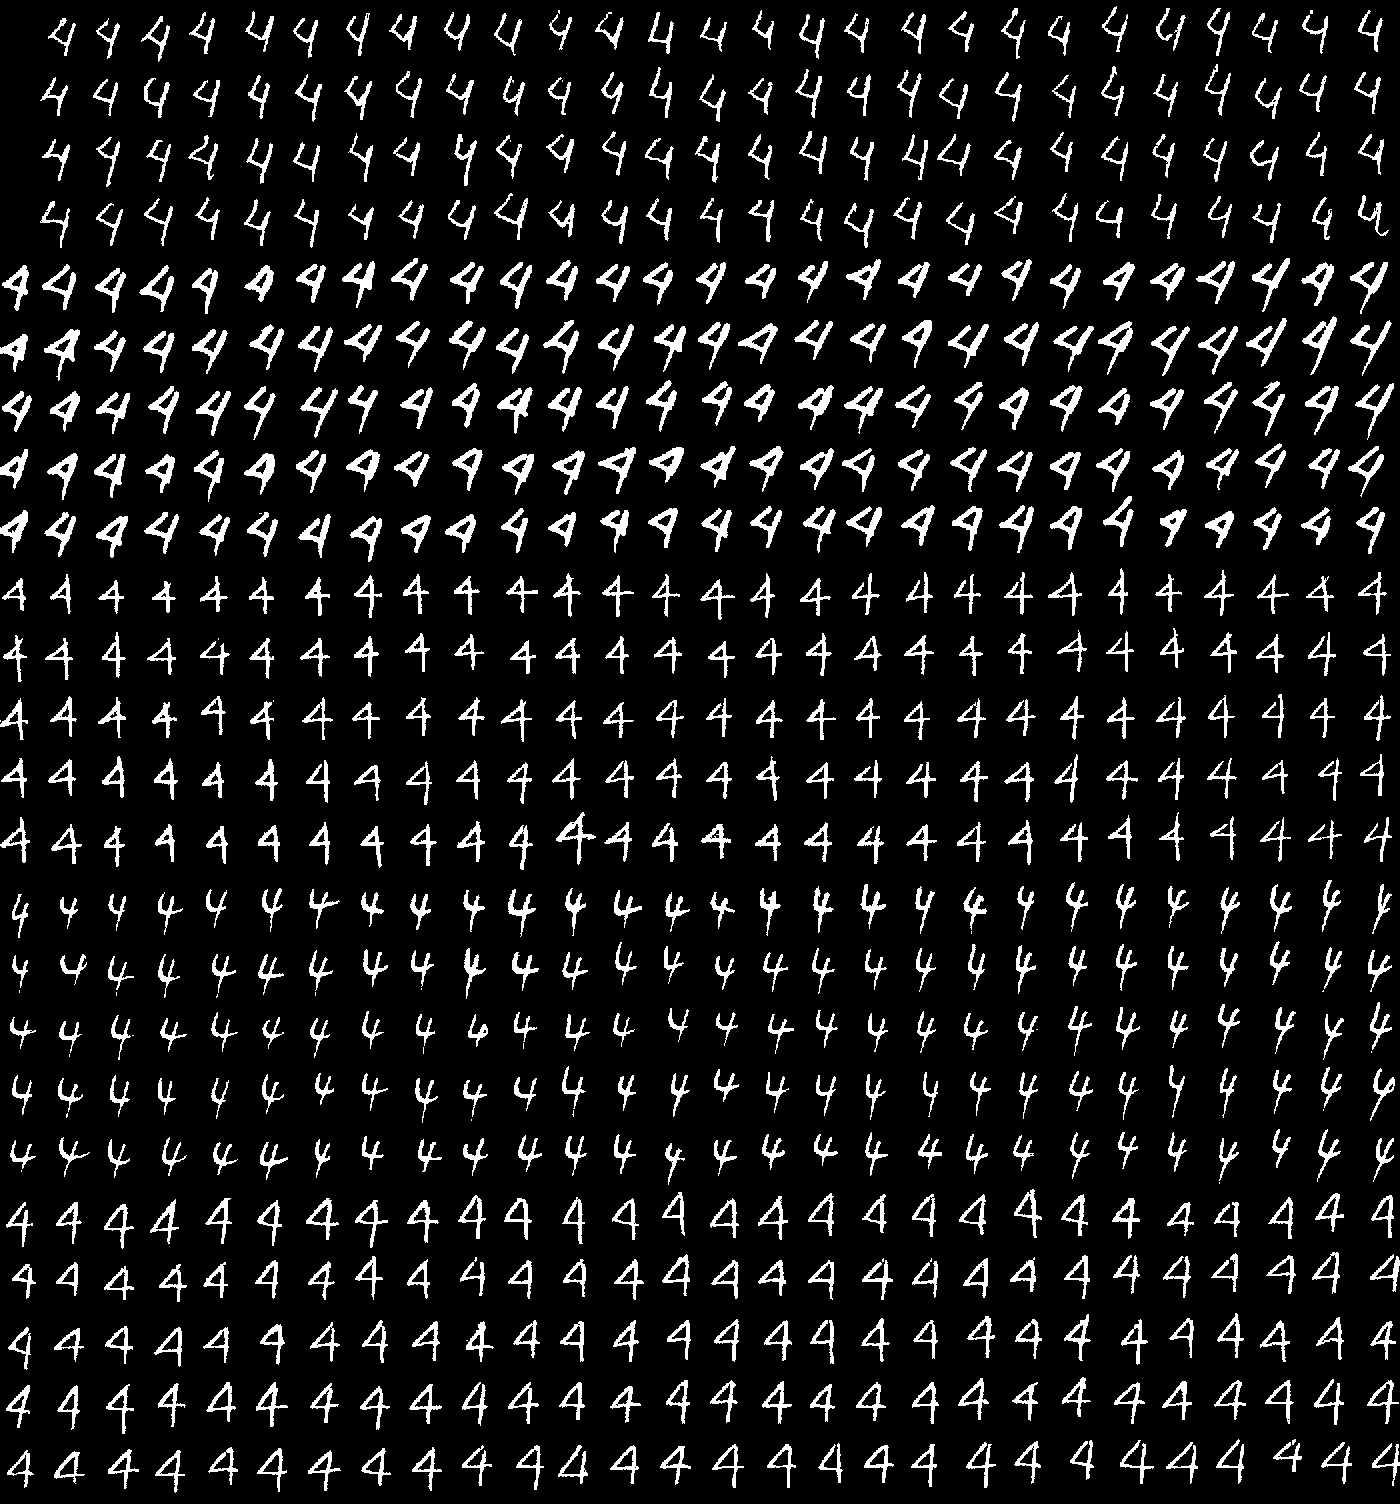 4 4 4 4 4 4 4 4 4 4 4 4 4 4 4 4 4 4 4 4 4 4 4 4 4 4 4
4 4 4 4 4 4 4 4 4 4 4 4 4 4 4 4 4 4 4 4 4 4 4 4 4 4 4
4 4 4 4 4 4 4 4 4 4 4 4 4 4 4 4 4 4 4 4 4 4 4 4 4 4 4
4 4 4 4 4 4 4 4 4 4 4 4 4 4 4 4 4 4 4 4 4 4 4 4 4 4 4
4 4 4 4 4 4 4 4 4 4 4 4 4 4 4 4 4 4 4 4 4 4 4 4 4 4 4 4
4 4 4 4 4 4 4 4 4 4 4 4 4 4 4 4 4 4 4 4 4 4 4 4 4 4 4 4
4 4 4 4 4 4 4 4 4 4 4 4 4 4 4 4 4 4 4 4 4 4 4 4 4 4 4 4
4 4 4 4 4 4 4 4 4 4 4 4 4 4 4 4 4 4 4 4 4 4 4 4 4 4 4 4
4 4 4 4 4 4 4 4 4 4 4 4 4 4 4 4 4 4 4 4 4 4 4 4 4 4 4 4
4 4 4 4 4 4 4 4 4 4 4 4 4 4 4 4 4 4 4 4 4 4 4 4 4 4 4 4
4 4 4 4 4 4 4 4 4 4 4 4 4 4 4 4 4 4 4 4 4 4 4 4 4 4 4 4
4 4 4 4 4 4 4 4 4 4 4 4 4 4 4 4 4 4 4 4 4 4 4 4 4 4 4 4
4 4 4 4 4 4 4 4 4 4 4 4 4 4 4 4 4 4 4 4 4 4 4 4 4 4 4 4
4 4 4 4 4 4 4 4 4 4 4 4 4 4 4 4 4 4 4 4 4 4 4 4 4 4 4 4
4 4 4 4 4 4 4 4 4 4 4 4 4 4 4 4 4 4 4 4 4 4 4 4 4 4 4 4
4 4 4 4 4 4 4 4 4 4 4 4 4 4 4 4 4 4 4 4 4 4 4 4 4 4 4 4
4 4 4 4 4 4 4 4 4 4 4 4 4 4 4 4 4 4 4 4 4 4 4 4 4 4 4 4
4 4 4 4 4 4 4 4 4 4 4 4 4 4 4 4 4 4 4 4 4 4 4 4 4 4 4 4
4 4 4 4 4 4 4 4 4 4 4 4 4 4 4 4 4 4 4 4 4 4 4 4 4 4 4 4
4 4 4 4 4 4 4 4 4 4 4 4 4 4 4 4 4 4 4 4 4 4 4 4 4 4 4 4
4 4 4 4 4 4 4 4 4 4 4 4 4 4 4 4 4 4 4 4 4 4 4 4 4 4 4 4
4 4 4 4 4 4 4 4 4 4 4 4 4 4 4 4 4 4 4 4 4 4 4 4 4 4 4 4
4 4 4 4 4 4 4 4 4 4 4 4 4 4 4 4 4 4 4 4 4 4 4 4 4 4 4 4
4 4 4 4 4 4 4 4 4 4 4 4 4 4 4 4 4 4 4 4 4 4 4 4 4 4 4 4